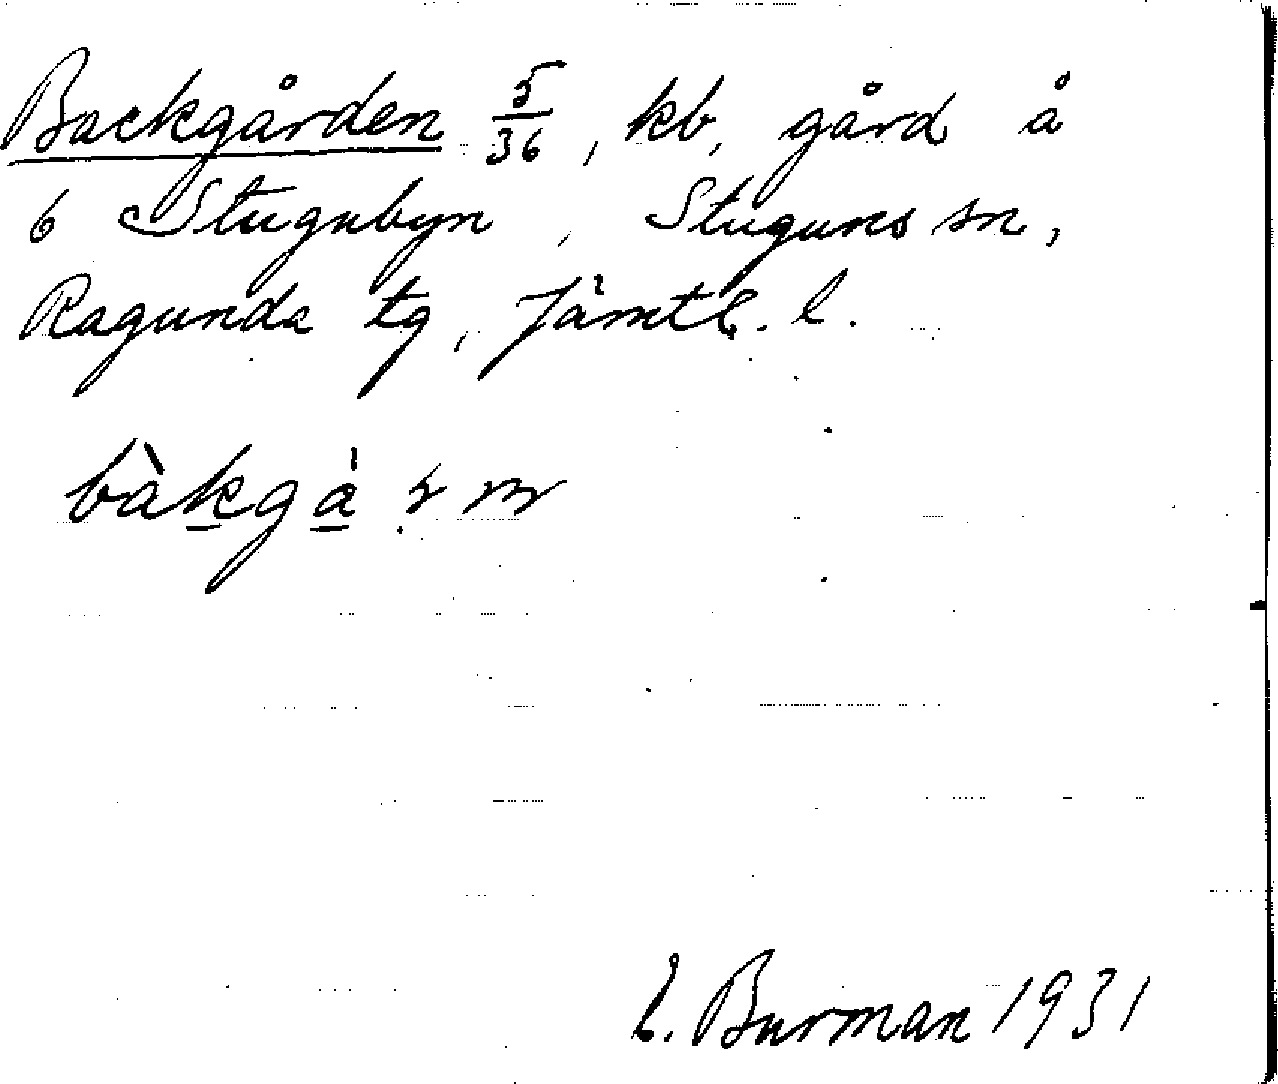 Backgården 5/36, kb, gård å
6 Stugubyn, Stuguns sn,
Ragunda tg, Jämtl. l.
bàkgà rn
E. Burman 1931